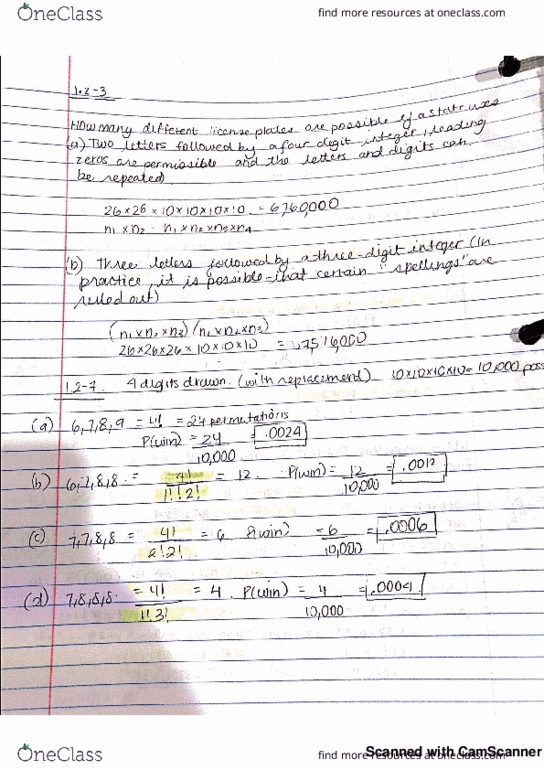 OneClass
find more resources at oneclass.com
1.2-3
How many different license plates are possible if a state uses
(a) Two letters followed by a four digit integer, leading
zeros are permissible and the letters and digits can
be repeated)
26×26×10×10×10×10 = 6,760,000
n₁ × n₂ · n₁ × n₂ × n₃ × n₄
(b) three letters followed by a three-digit integer (In
practice, it is possible that certain "spellings" are
ruled out)
(n₁ × n₂ × n₃) (n₁ × n₂ × n₃)
26×26×26 × 10×10×10 = 17,576,000
1.2-7 4 digits drawn. (with replacement) 10×10×10×10 = 10,000 poss
(a) 6,7,8,9 = 4! = 24 permutations
P(win) = 24 = .0024
10,000
(b) 6,7,8,8 = 4! = 12 P(win) = 12 = .0012
1!1!2! 10,000
(c) 7,7,8,8 = 4! = 6 P(win) = 6 = .0006
2!2! 10,000
(d) 7,8,8,8 = 4! = 4 P(win) = 4 = .0004
1!3! 10,000
OneClass
find more resources at oneclass.com
Scanned with CamScanner